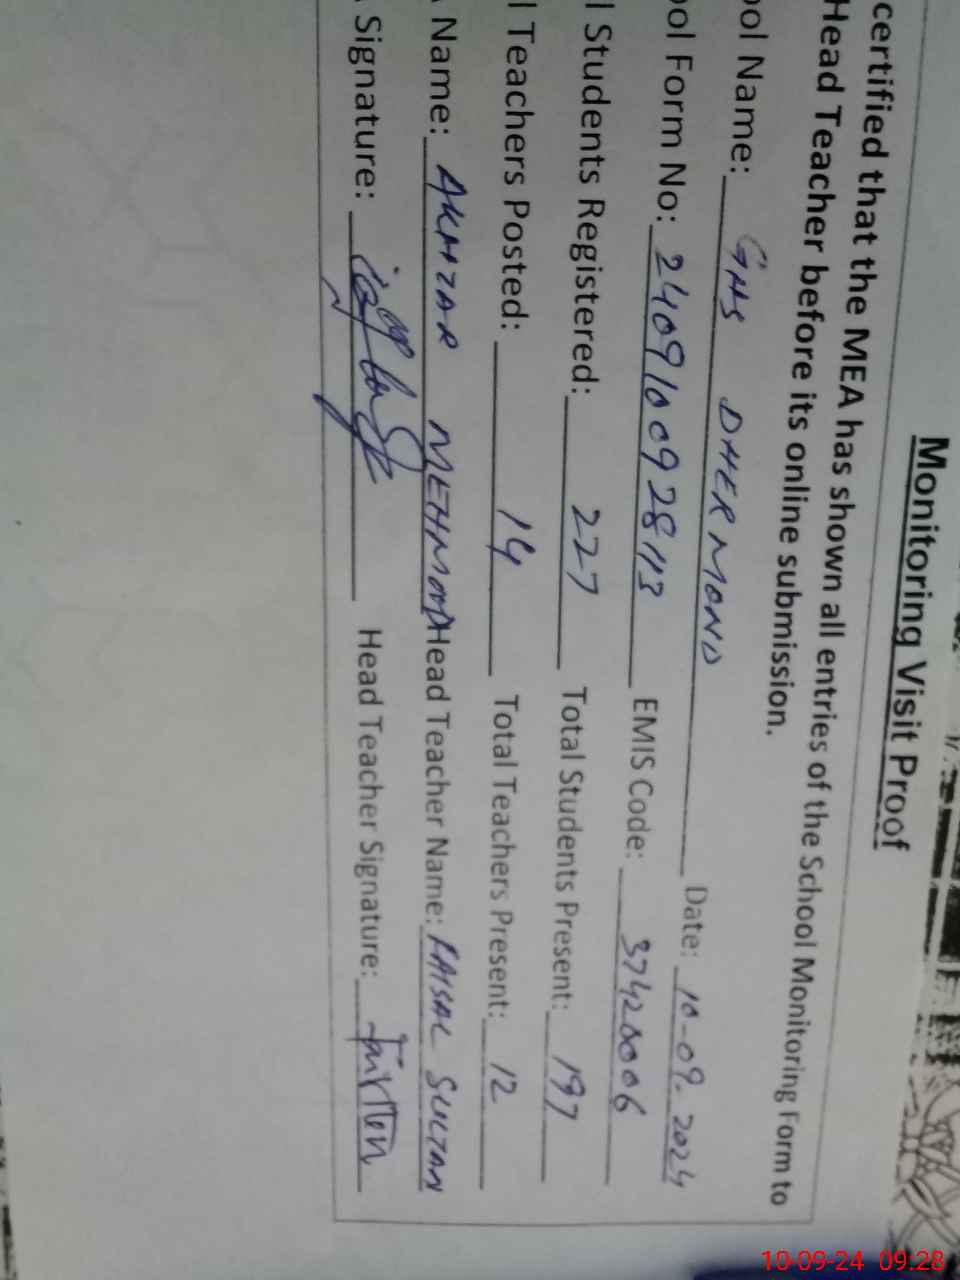 Monitoring Visit Proof
certified that the MEA has shown all entries of the School Monitoring Form to
Head Teacher before its online submission.
ool Name: GHS DHERMOND Date: 10-09-2024
ool Form No: 2409100928113 EMIS Code: 37420006
l Students Registered: 227 Total Students Present: 197
l Teachers Posted: 14 Total Teachers Present: 12
Name: AKHZAR MEHMOOD Head Teacher Name: FAISAL SULTAN
Signature: Head Teacher Signature:
10-09-24 09:28